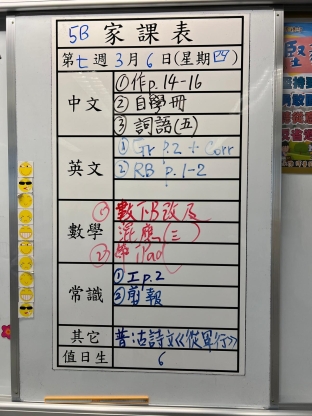 5B 家課表
第七週3月6日(星期四)
中文
①作p.14-16
②自學冊
③詞語(五)
英文
①Gr P.2 + Corr
②RB p.1-2
數學
①數下B改及
混應(三)
②帶iPad
常識
①工p.2
②剪報
其它
普:古詩文《從軍行》
值日生
6